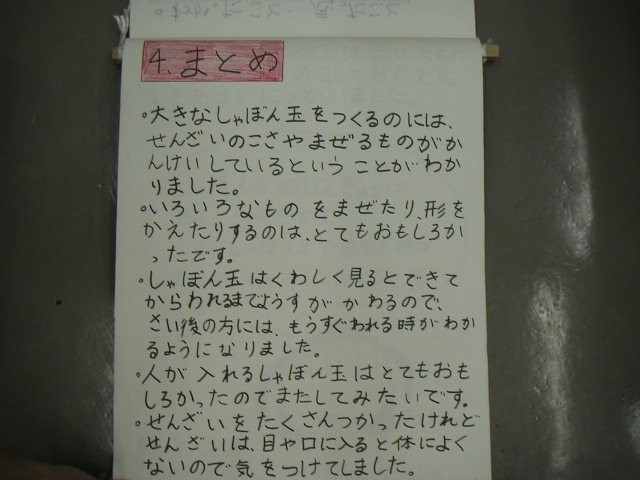 4.まとめ
。大きなしゃぼん玉をつくるのには、
せんざいのこさやまぜるものがか
んけいしているということがわか
りました。
。いろいろなものをまぜたり、形を
かえたりするのは、とてもおもしろか
ったです。
。しゃぼん玉はくわしく見るとできて
からわれるまでようすがかわるので、
さい後の方には、もうすぐわれる時がわか
るようになりました。
。人が入れるしゃぼん玉はとてもおも
しろかったのでまたしてみたいです。
。せんざいをたくさんつかったけれど
せんざいは、目や口に入ると体によく
ないので気をつけてしました。